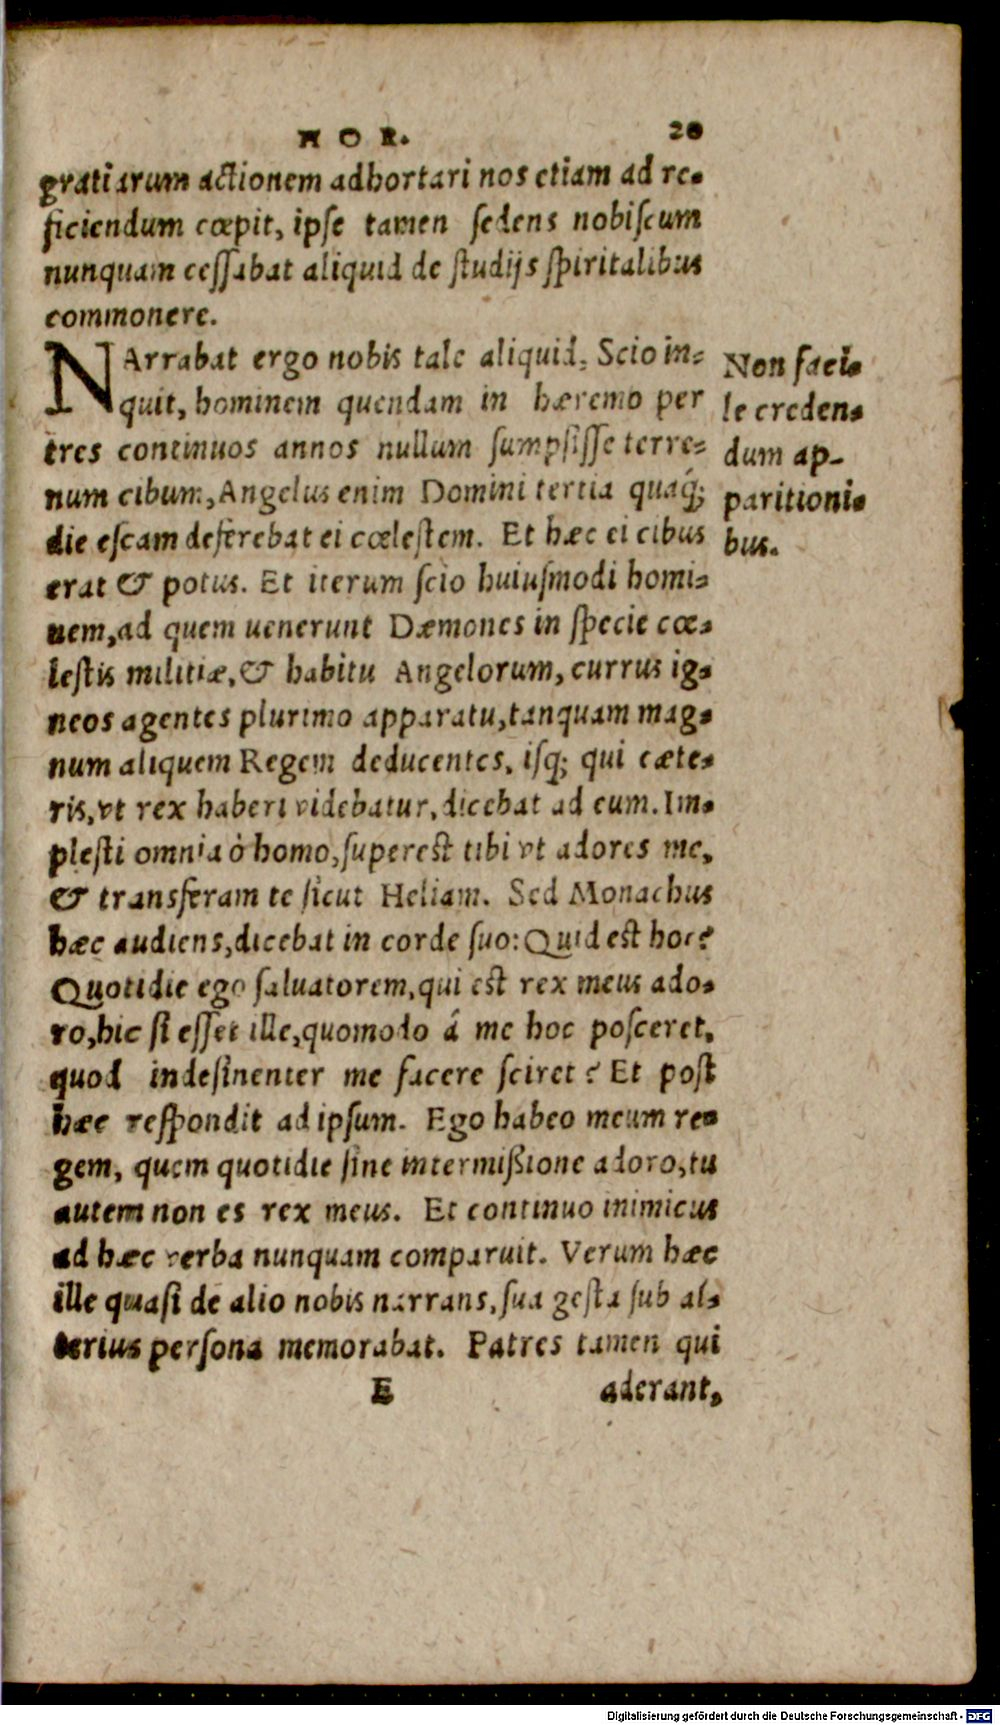 HOR. 20
gratiarum actionem adhortari nos etiam ad re-
ficiendum cœpit, ipſe tamen ſedens nobiſcum
nunquam ceſſabat aliquid de ſtudijs ſpiritalibus
commonere.
NArrabat ergo nobis tale aliquid. Scio in-
quit, hominem quendam in hæremo per
tres continuos annos nullum ſumpſiſſe terre-
num cibum, Angelus enim Domini tertia quaq;
die eſcam deferebat ei cœleſtem. Et hæc ei cibus
erat & potus. Et iterum ſcio huiuſmodi homi-
nem, ad quem uenerunt Dæmones in ſpecie cœ-
leſtis militiæ, & habitu Angelorum, currus ig-
neos agentes plurimo apparatu, tanquam mag-
num aliquem Regem deducentes, iſq; qui cæte-
ris, vt rex haberi videbatur, dicebat ad eum. Im-
pleſti omnia ò homo, ſupereſt tibi vt adores me,
& transferam te ſicut Heliam. Sed Monachus
hæc audiens, dicebat in corde ſuo: Quid eſt hoc?
Quotidie ego ſaluatorem, qui eſt rex meus ado-
ro, hic ſi eſſet ille, quomodo á me hoc poſceret,
quod indeſinenter me facere ſciret? Et poſt
hæc reſpondit ad ipſum. Ego habeo meum re-
gem, quem quotidie ſine intermißione adoro, tu
autem non es rex meus. Et continuo inimicus
ad hæc verba nunquam comparuit. Verum hæc
ille quaſi de alio nobis narrans, ſua geſta ſub al-
terius perſona memorabat. Patres tamen qui
E aderant,
Non faci-
le creden-
dum ap-
paritioni-
bus.
Digitalisierung gefördert durch die Deutsche Forschungsgemeinschaft - DFG